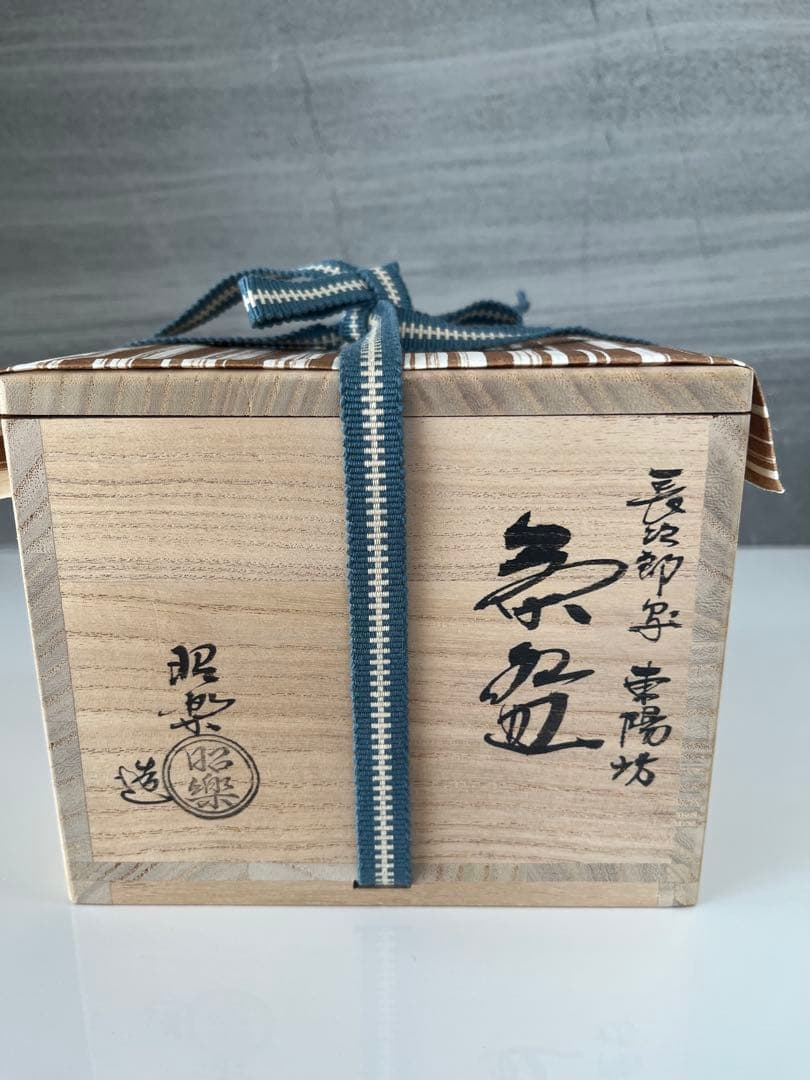 長次郎写 東陽坊
茶盌
昭楽
造
昭樂